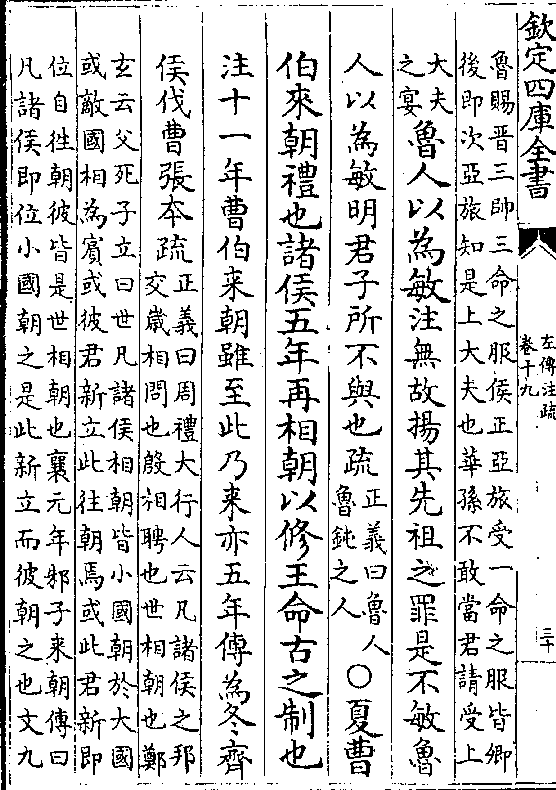 欽定四庫全書
左傳注疏
卷十九
三十
魯賜晋三帥三命之服侯正亞旅受一命之服皆卿
後即次亞旅知是上大夫也華孫不敢當君請受上
大夫
之宴
魯人以為敏注無故揚其先祖之罪是不敏魯
人以為敏明君子所不與也疏
正義曰魯人
魯鈍之人
○夏曹
伯來朝禮也諸侯五年再相朝以修王命古之制也
注十一年曹伯来朝雖至此乃来亦五年傳為冬齊
侯伐曹張本疏
正義曰周禮大行人云凡諸侯之邦
交歲相問也殷相聘也世相朝也鄭
玄云父死子立曰世凡諸侯相朝皆小國朝於大國
或敵國相為賓或彼君新立此往朝焉或此君新即
位自往朝彼皆是世相朝也襄元年邾子来朝傳曰
凡諸侯即位小國朝之是此新立而彼朝之也文九